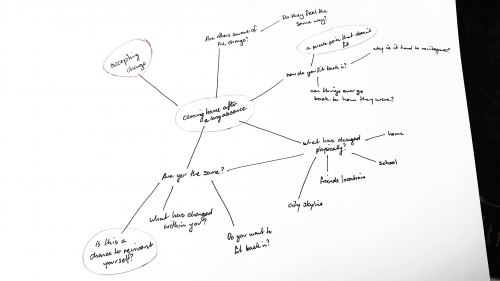 Do they feel the
same way?
Are others aware of
the change?
a puzzle piece that doesn't
fit
accepting
change
why is it hard to reintegrate?
how do you fit back in?
can things ever go
back to how they were?
coming home after
a long absence
what has changed
physically?
home
school
friends locations
city skyline
Are you the same?
what has changed
within you?
Do you want to
fit back in?
is this a
chance to reinvent
yourself?